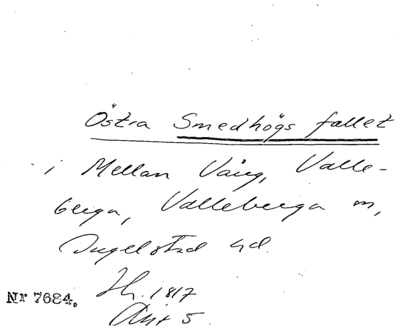 Östra Smedhögs fallet
i Mellan Vång, Valle-
berga, Valleberga sn,
Ingelstad hd.
Nr 7684. Hr. 1817
Akt 5